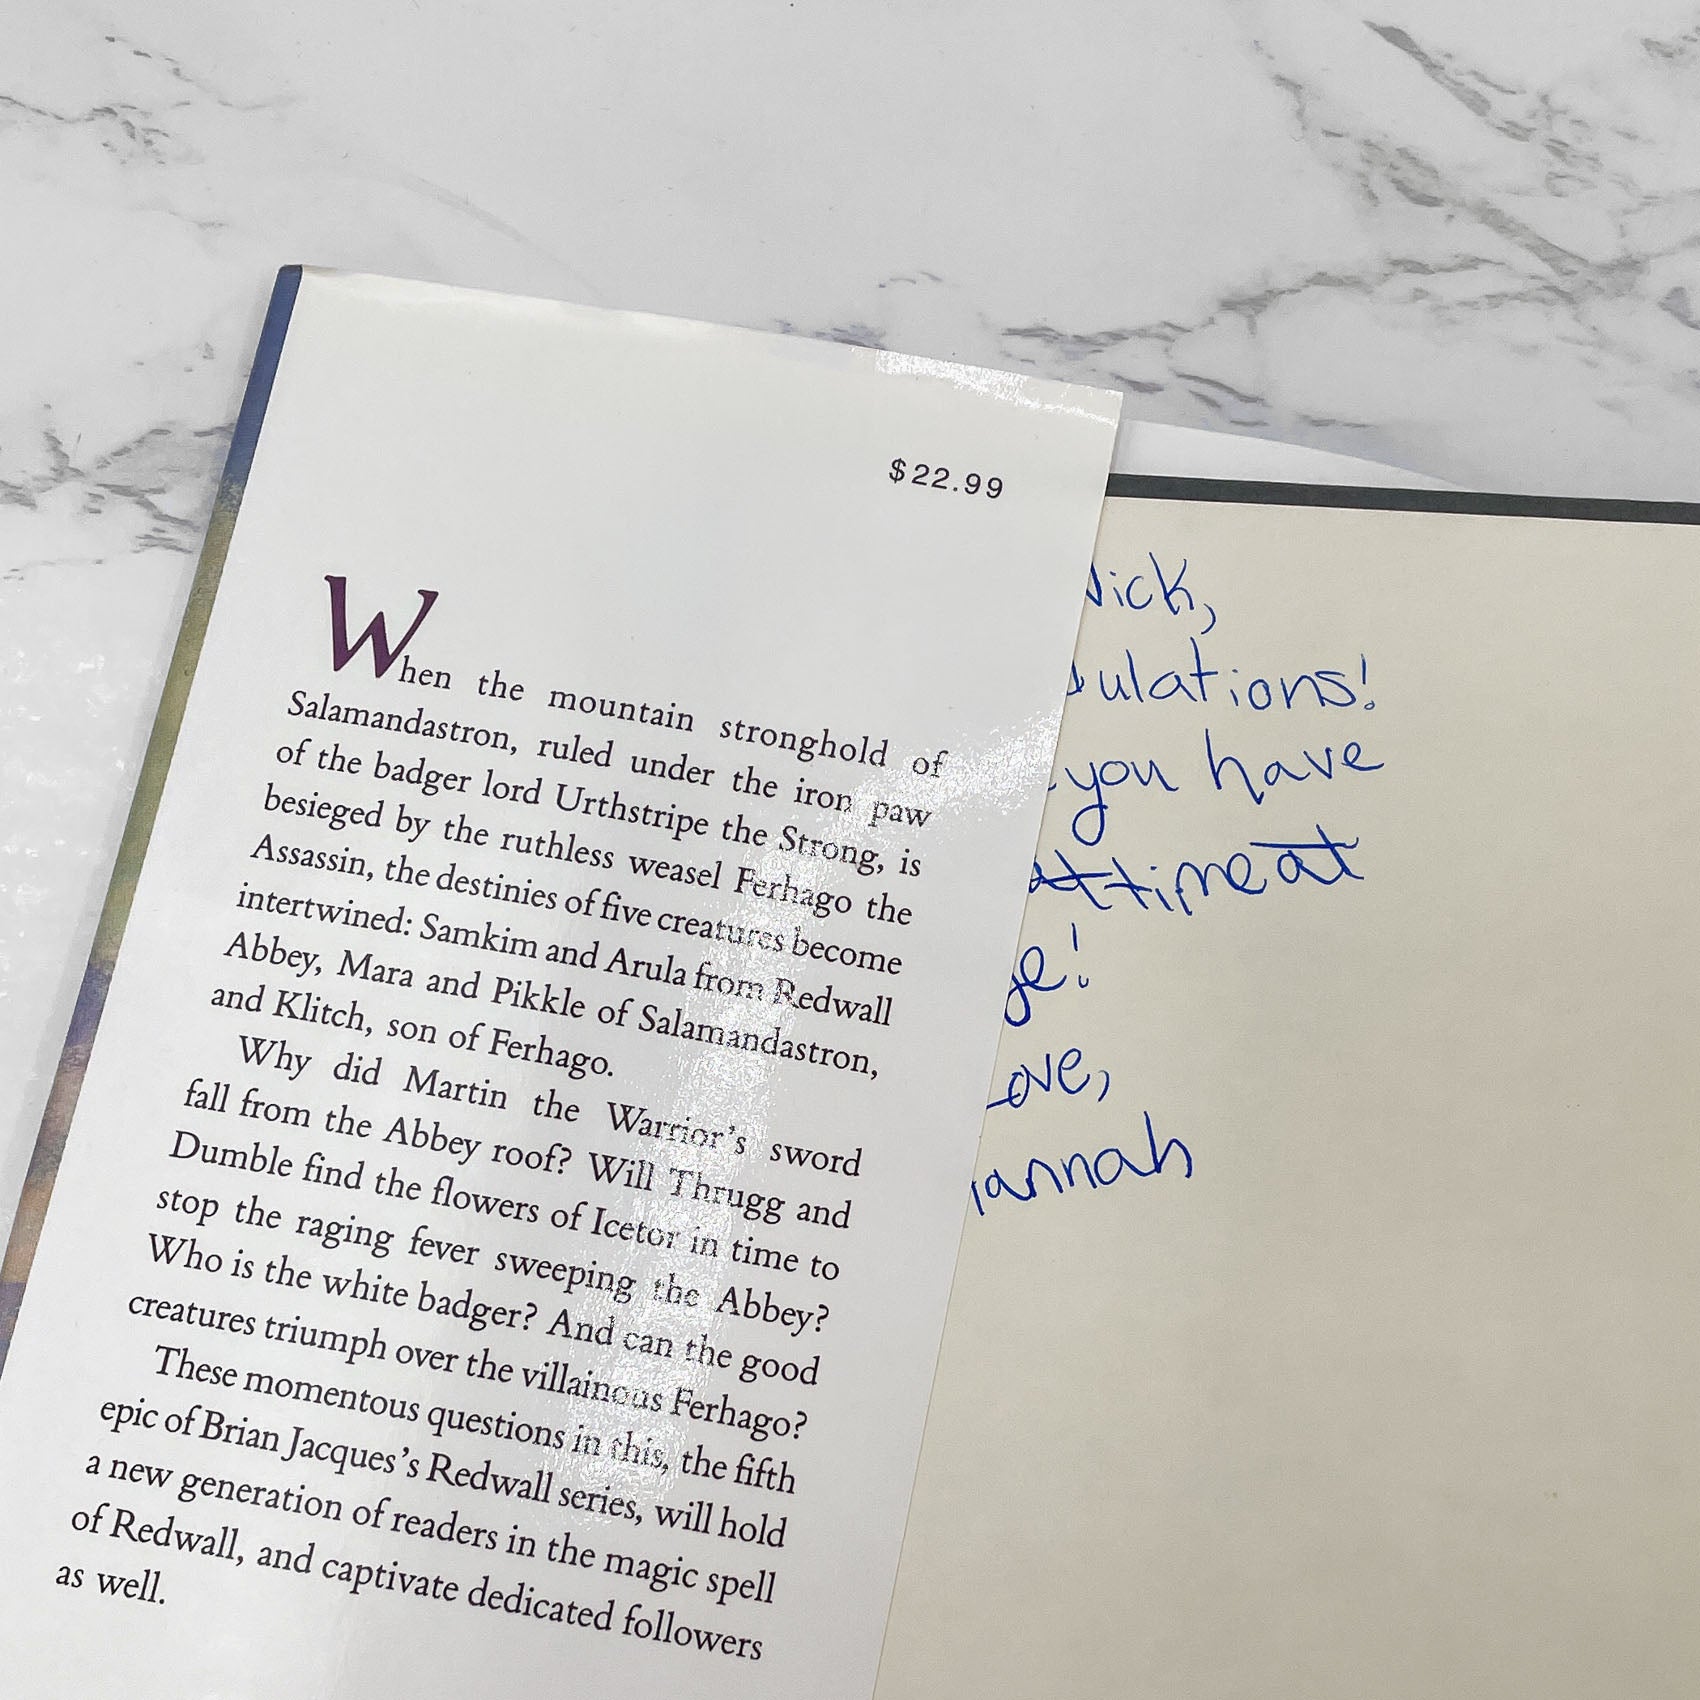 $22.99
When the mountain stronghold of
Salamandastron, ruled under the iron paw
of the badger lord Urthstripe the Strong, is
besieged by the ruthless weasel Ferhago the
Assassin, the destinies of five creatures become
intertwined: Samkim and Arula from Redwall
Abbey, Mara and Pikkle of Salamandastron,
and Klitch, son of Ferhago.
Why did Martin the Warrior's sword
fall from the Abbey roof? Will Thrugg and
Dumble find the flowers of Icetor in time to
stop the raging fever sweeping the Abbey?
Who is the white badger? And can the good
creatures triumph over the villainous Ferhago?
These momentous questions in this, the fifth
epic of Brian Jacques's Redwall series, will hold
a new generation of readers in the magic spell
of Redwall, and captivate dedicated followers
as well.
ick,
ulations!
you have
time at
ge!
ove,
annah